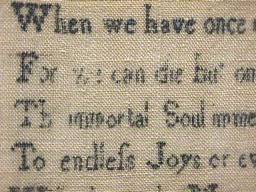 When we have once
For we can die but on
Th immortal Soul imme
To endleſs Joys or ev